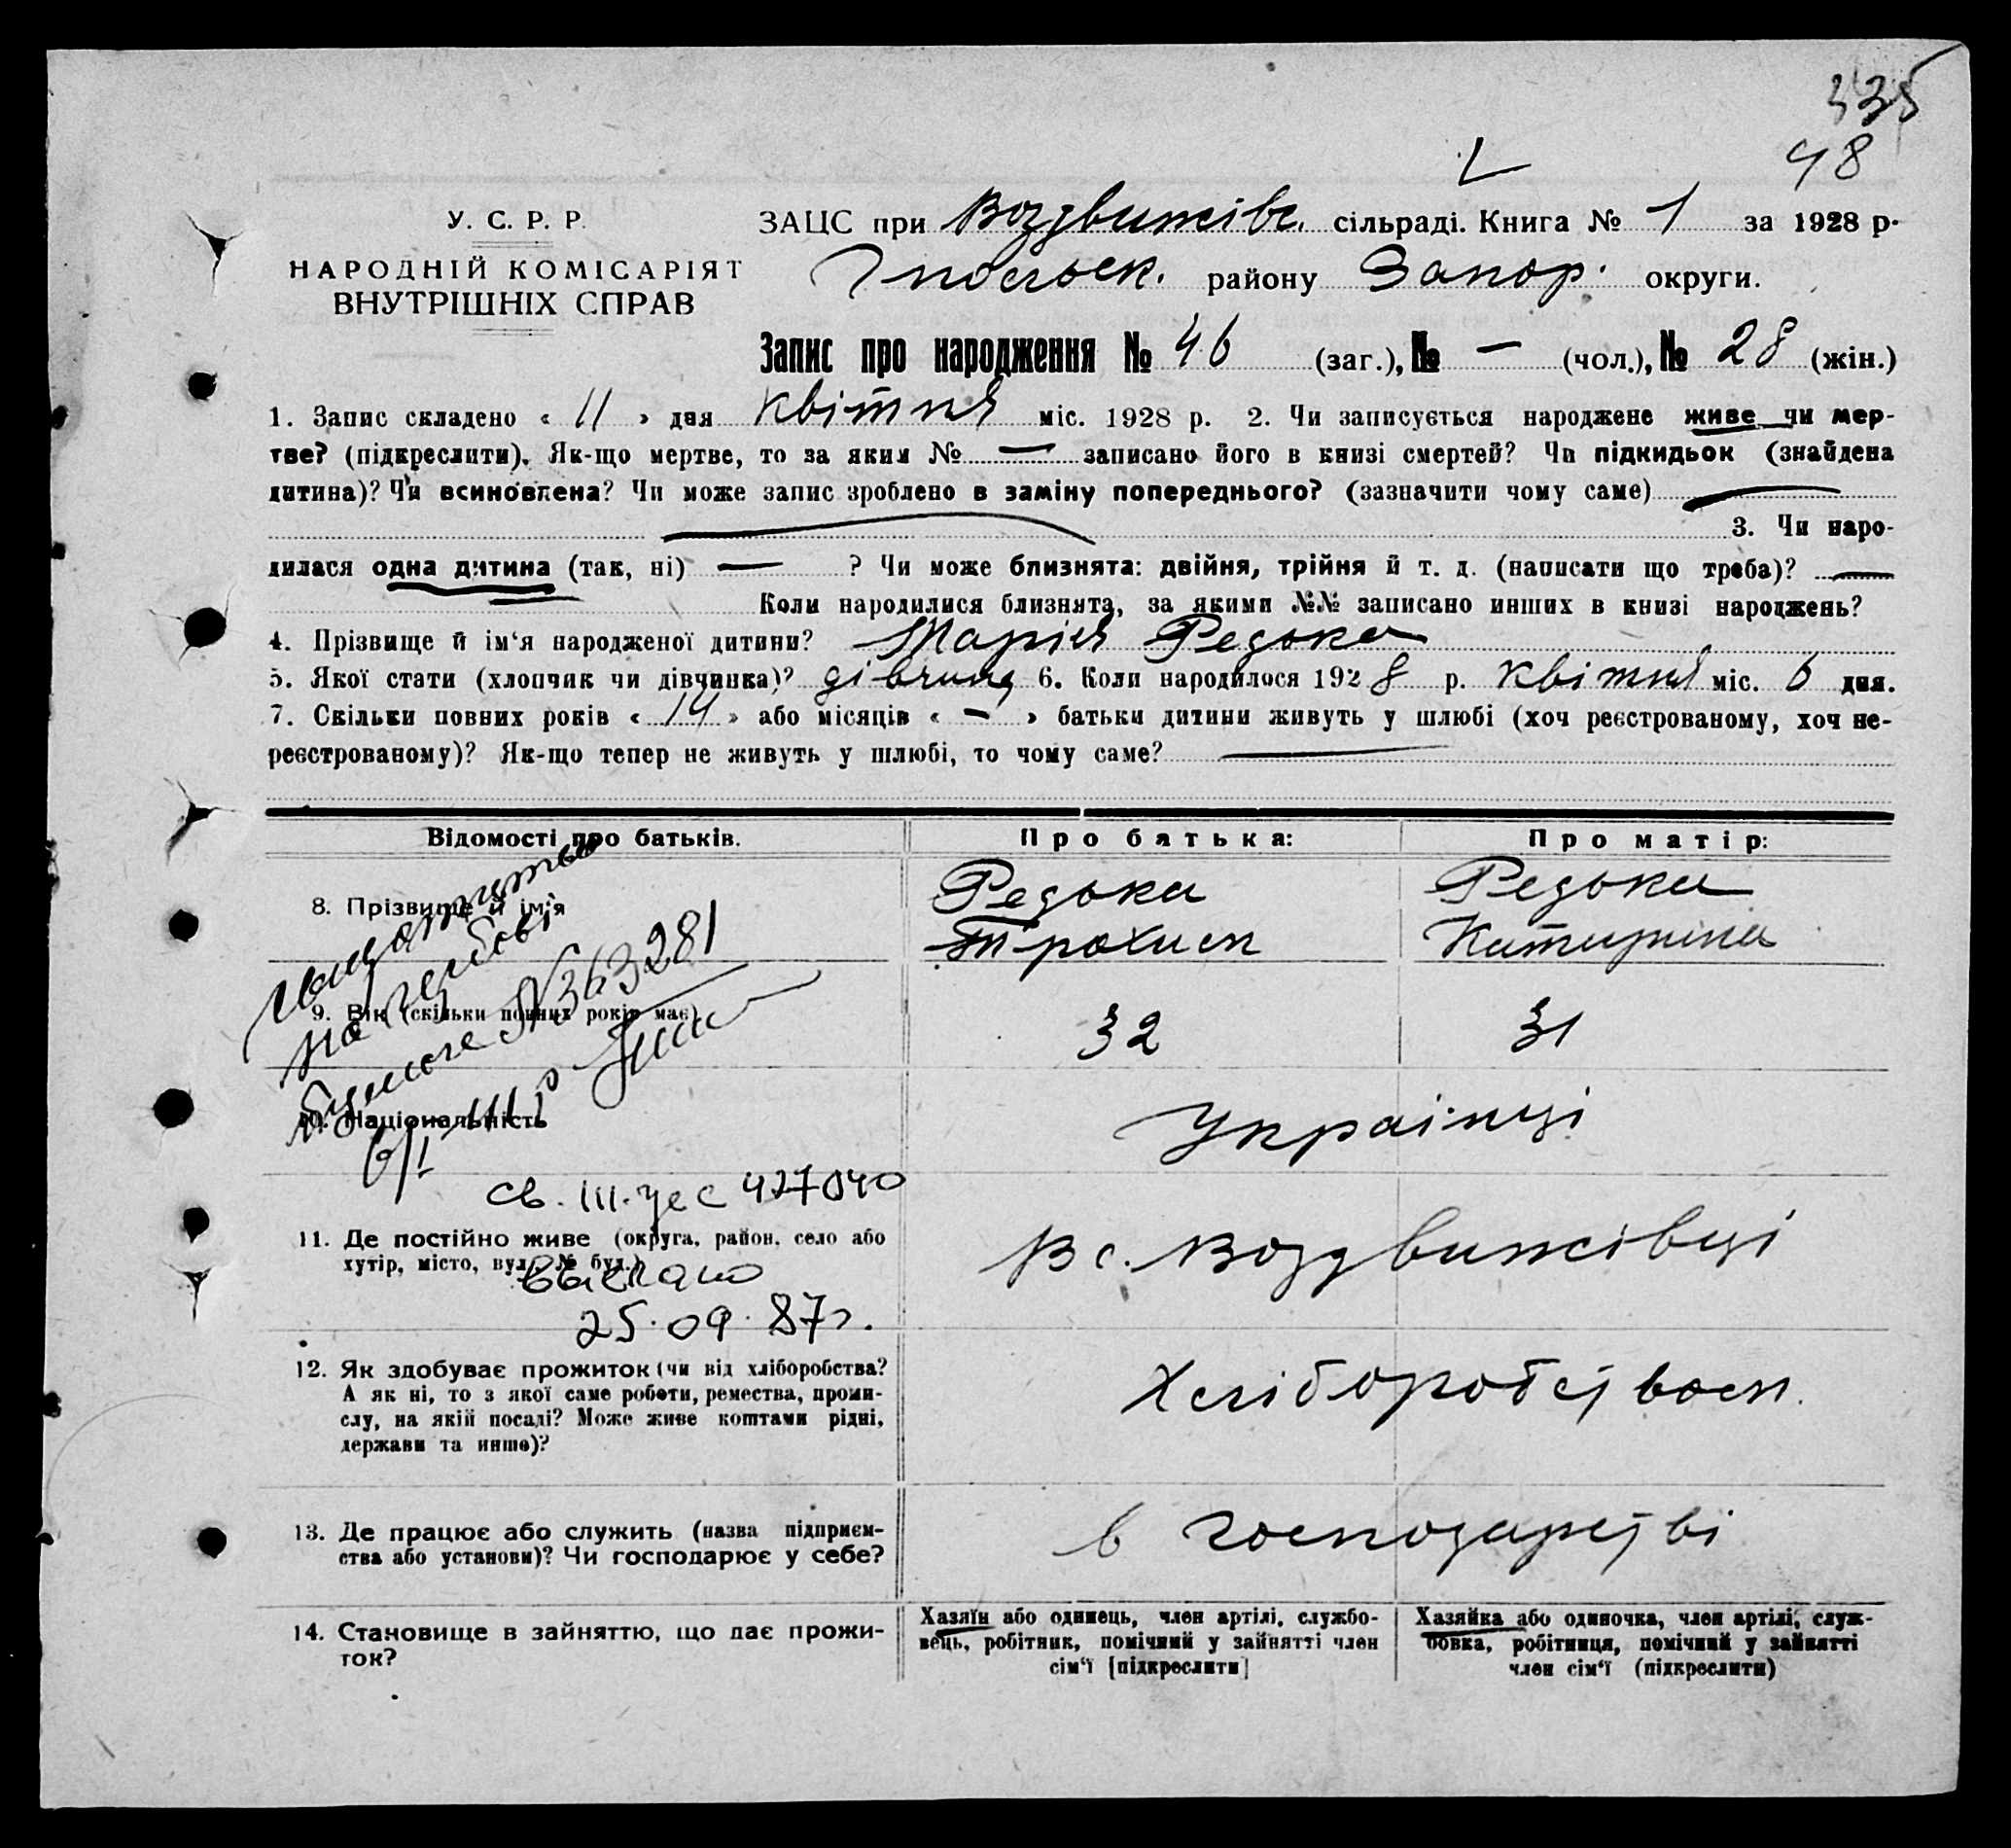 335
48
У. С. Р. Р.
НАРОДНІЙ КОМІСАРІЯТ
ВНУТРІШНІХ СПРАВ
ЗАЦС при Воздвижівс. сільраді. Книга № 1 за 1928 р.
району Запор. округи.
Запис про народження № 46 (заг.), № — (чол.), № 28 (жін.)
1. Запис складено « 11 » дня квітня міс. 1928 р. 2. Чи записується народжене живе чи мер-
тве? (підкреслити). Як-що мертве, то за яким № — записано його в книзі смертей? Чи підкидьок (знайдена
дитина)? Чи всиновлена? Чи може запис зроблено в заміну попереднього? (зазначити чому саме) —
— 3. Чи наро-
дилася одна дитина (так, ні) — ? Чи може близнята: двійня, трійня й т. д. (написати що треба)? —
Коли народилися близнята, за якими №№ записано инших в книзі народжень?
4. Прізвище й ім‘я народженої дитини? Марія Редька
5. Якої стати (хлопчик чи дівчинка)? дівчина 6. Коли народилося 1928 р. квітня міс. 6 дня.
7. Скільки повних років « 14 » або місяців « — » батьки дитини живуть у шлюбі (хоч реєстрованому, хоч не-
реєстрованому)? Як-що тепер не живуть у шлюбі, то чому саме? —
Відомості про батьків. Про батька: Про матір:
8. Прізвище й ім‘я Редька Редька
Трохим Катирина
9. Вік (скільки повних років має) 32 31
№ 363281
10. Національність Українці
св. III. 427040
11. Де постійно живе (округа, район, село або
хутір, місто, вул., № буд.) В с. Воздвижівці
выслано
25.09.87г.
12. Як здобуває прожиток (чи від хліборобства?
А як ні, то з якої саме роботи, ремества, проми-
слу, на якій посаді? Може живе коштами рідні,
держави та инше)? Хліборобством.
13. Де працює або служить (назва підприєм-
ства або установи)? Чи господарює у себе? в господарстві
14. Становище в зайняттю, що дає прожи-
ток?
Хазяїн або одинець, член артілі, службо-
вець, робітник, помічний у зайнятті член
сім‘ї [підкреслити]
Хазяйка або одиночка, член артілі, служ-
бовка, робітниця, помічний у зайнятті
член сім‘ї (підкреслити)